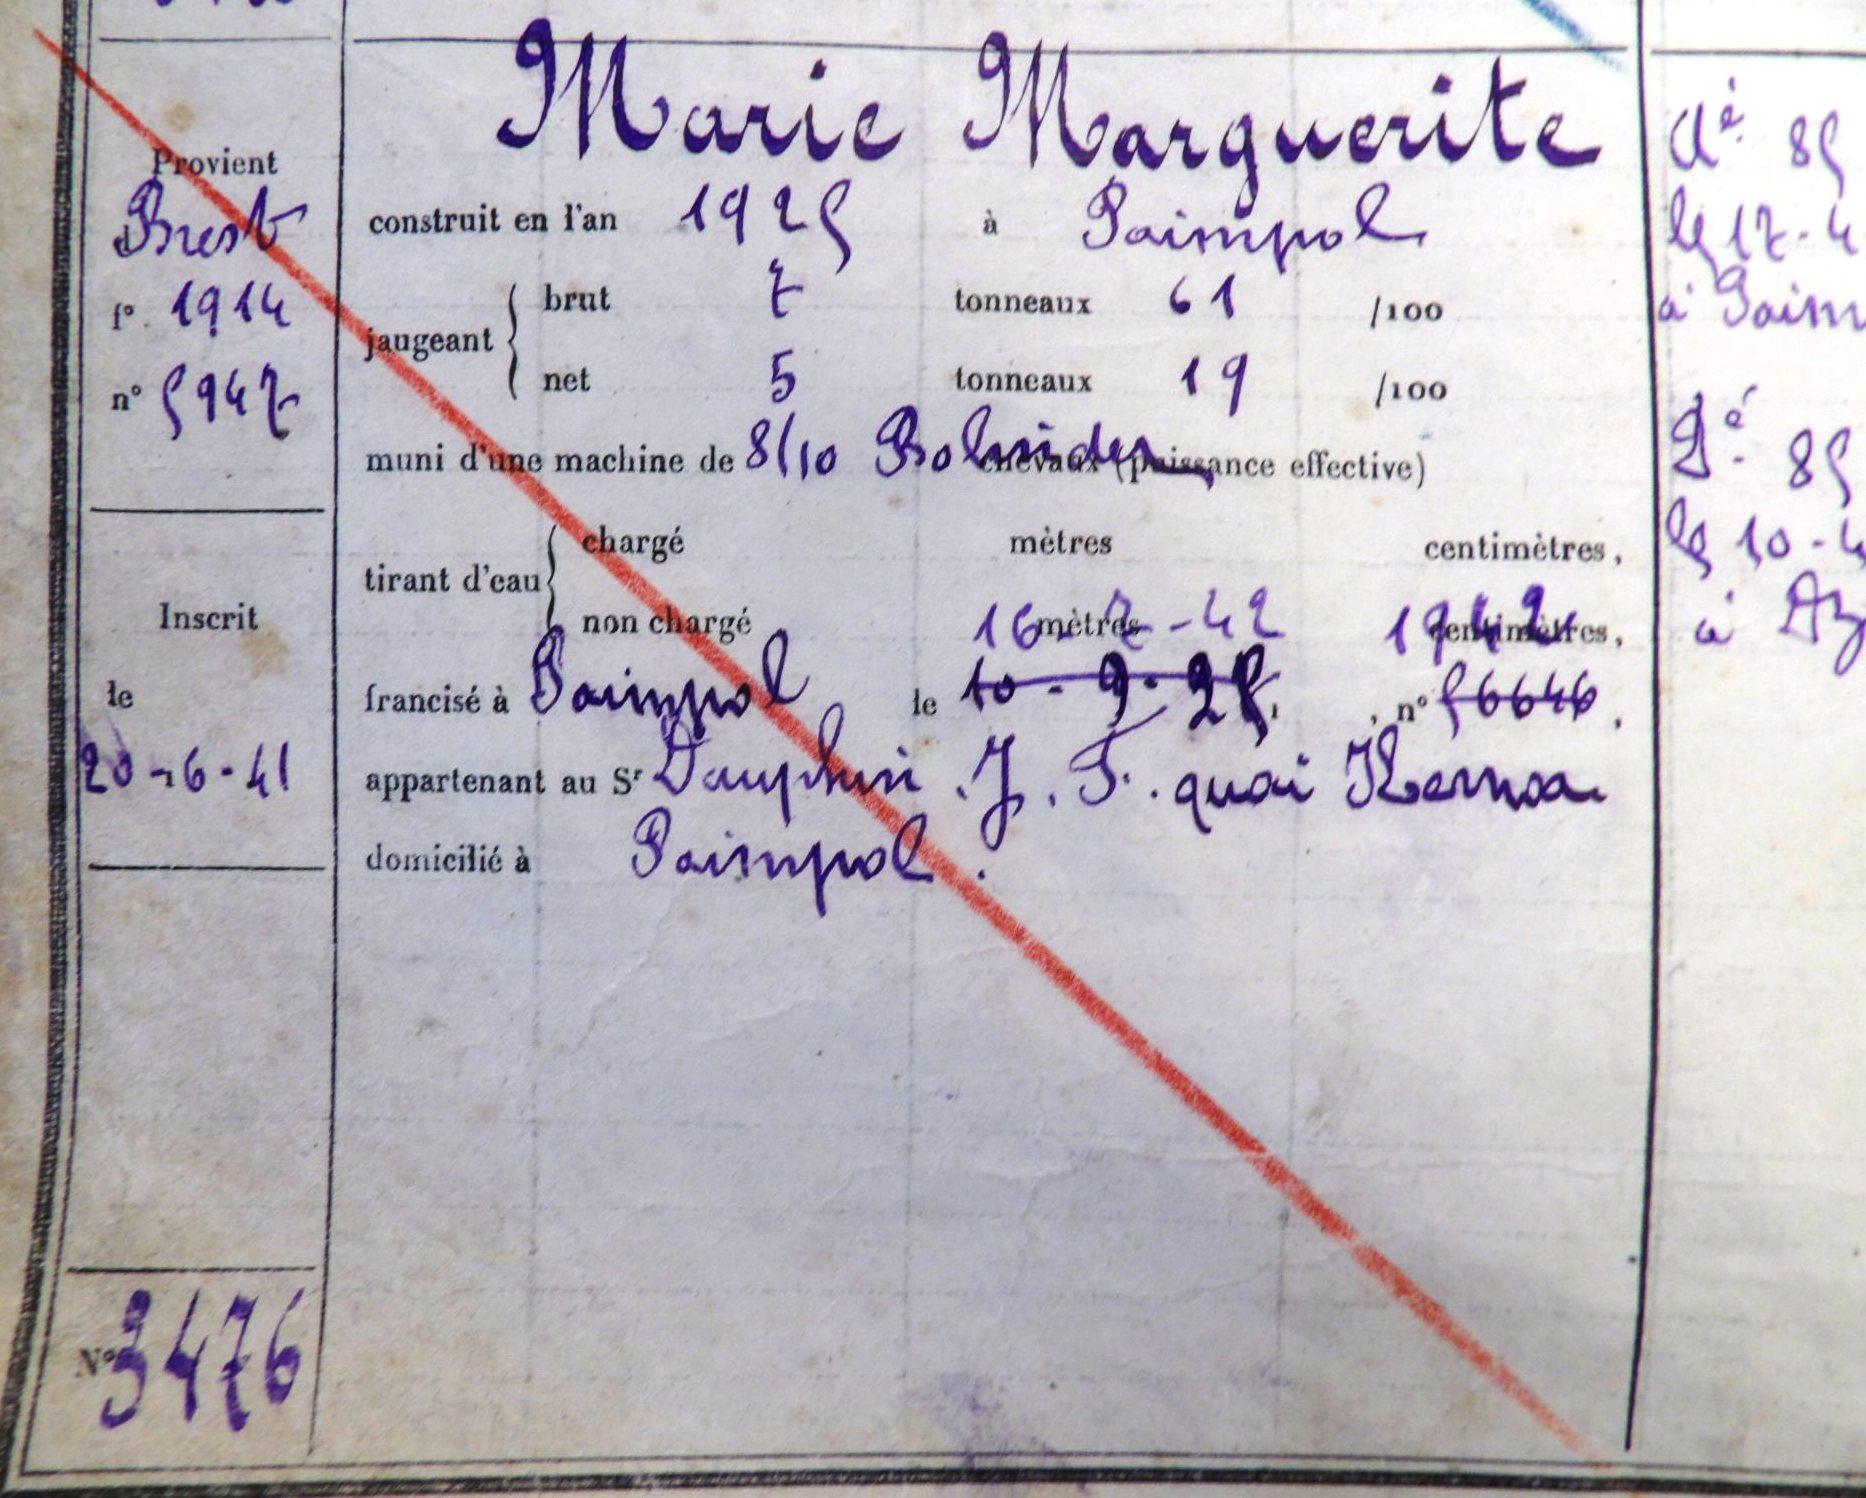 Marie Marguerite
Provient
Brest
f° 1914
n° 5947
construit en l'an 1925 à Paimpol
jaugeant
brut 7 tonneaux 61 /100
net 5 tonneaux 19 /100
muni d'une machine de 8/10 Bolnider chevaux (puissance effective)
tirant d'eau
chargé mètres centimètres,
non chargé mètres centimètres,
16-7-42
francisé à Paimpol le 10-9-25, n° 56646,
Inscrit
le
20-6-41
appartenant au Sr Dauphin J. F. quai Kernoa
domicilié à Paimpol.
N° 3476
Aé 85
le 17-4
à Paim
Dé 85
le 10-4
à